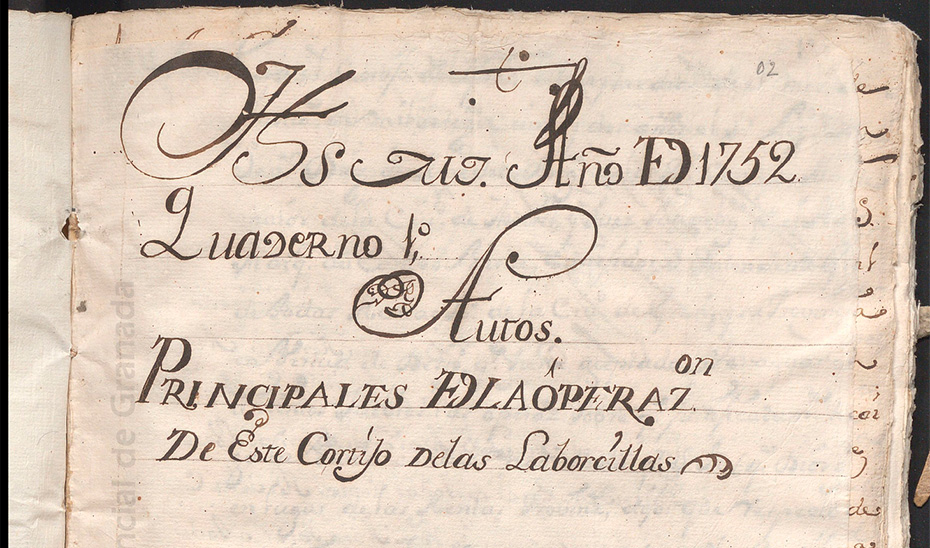 02
Año DE 1752
Quaderno 1.º
Autos.
PRINCIPALES DE LA ÓPERAZ.on
De Este Cortijo Delas Laborcillas
de Granada